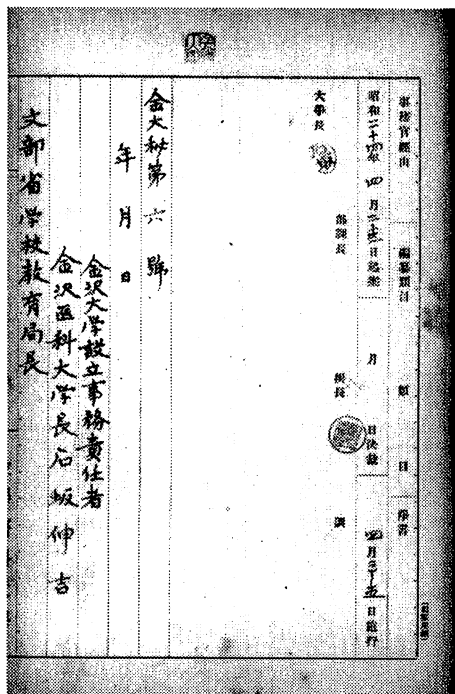 事務官經由 編纂類目 類 目 淨書
昭和二十四年 四月二十五日起案 月 日決裁 四月二十五日施行
大學長 部課長 係長
金大秘第六號
年 月 日
金沢大学設立事務責任者
金沢医科大学長石坂伸吉
文部省学校教育局長